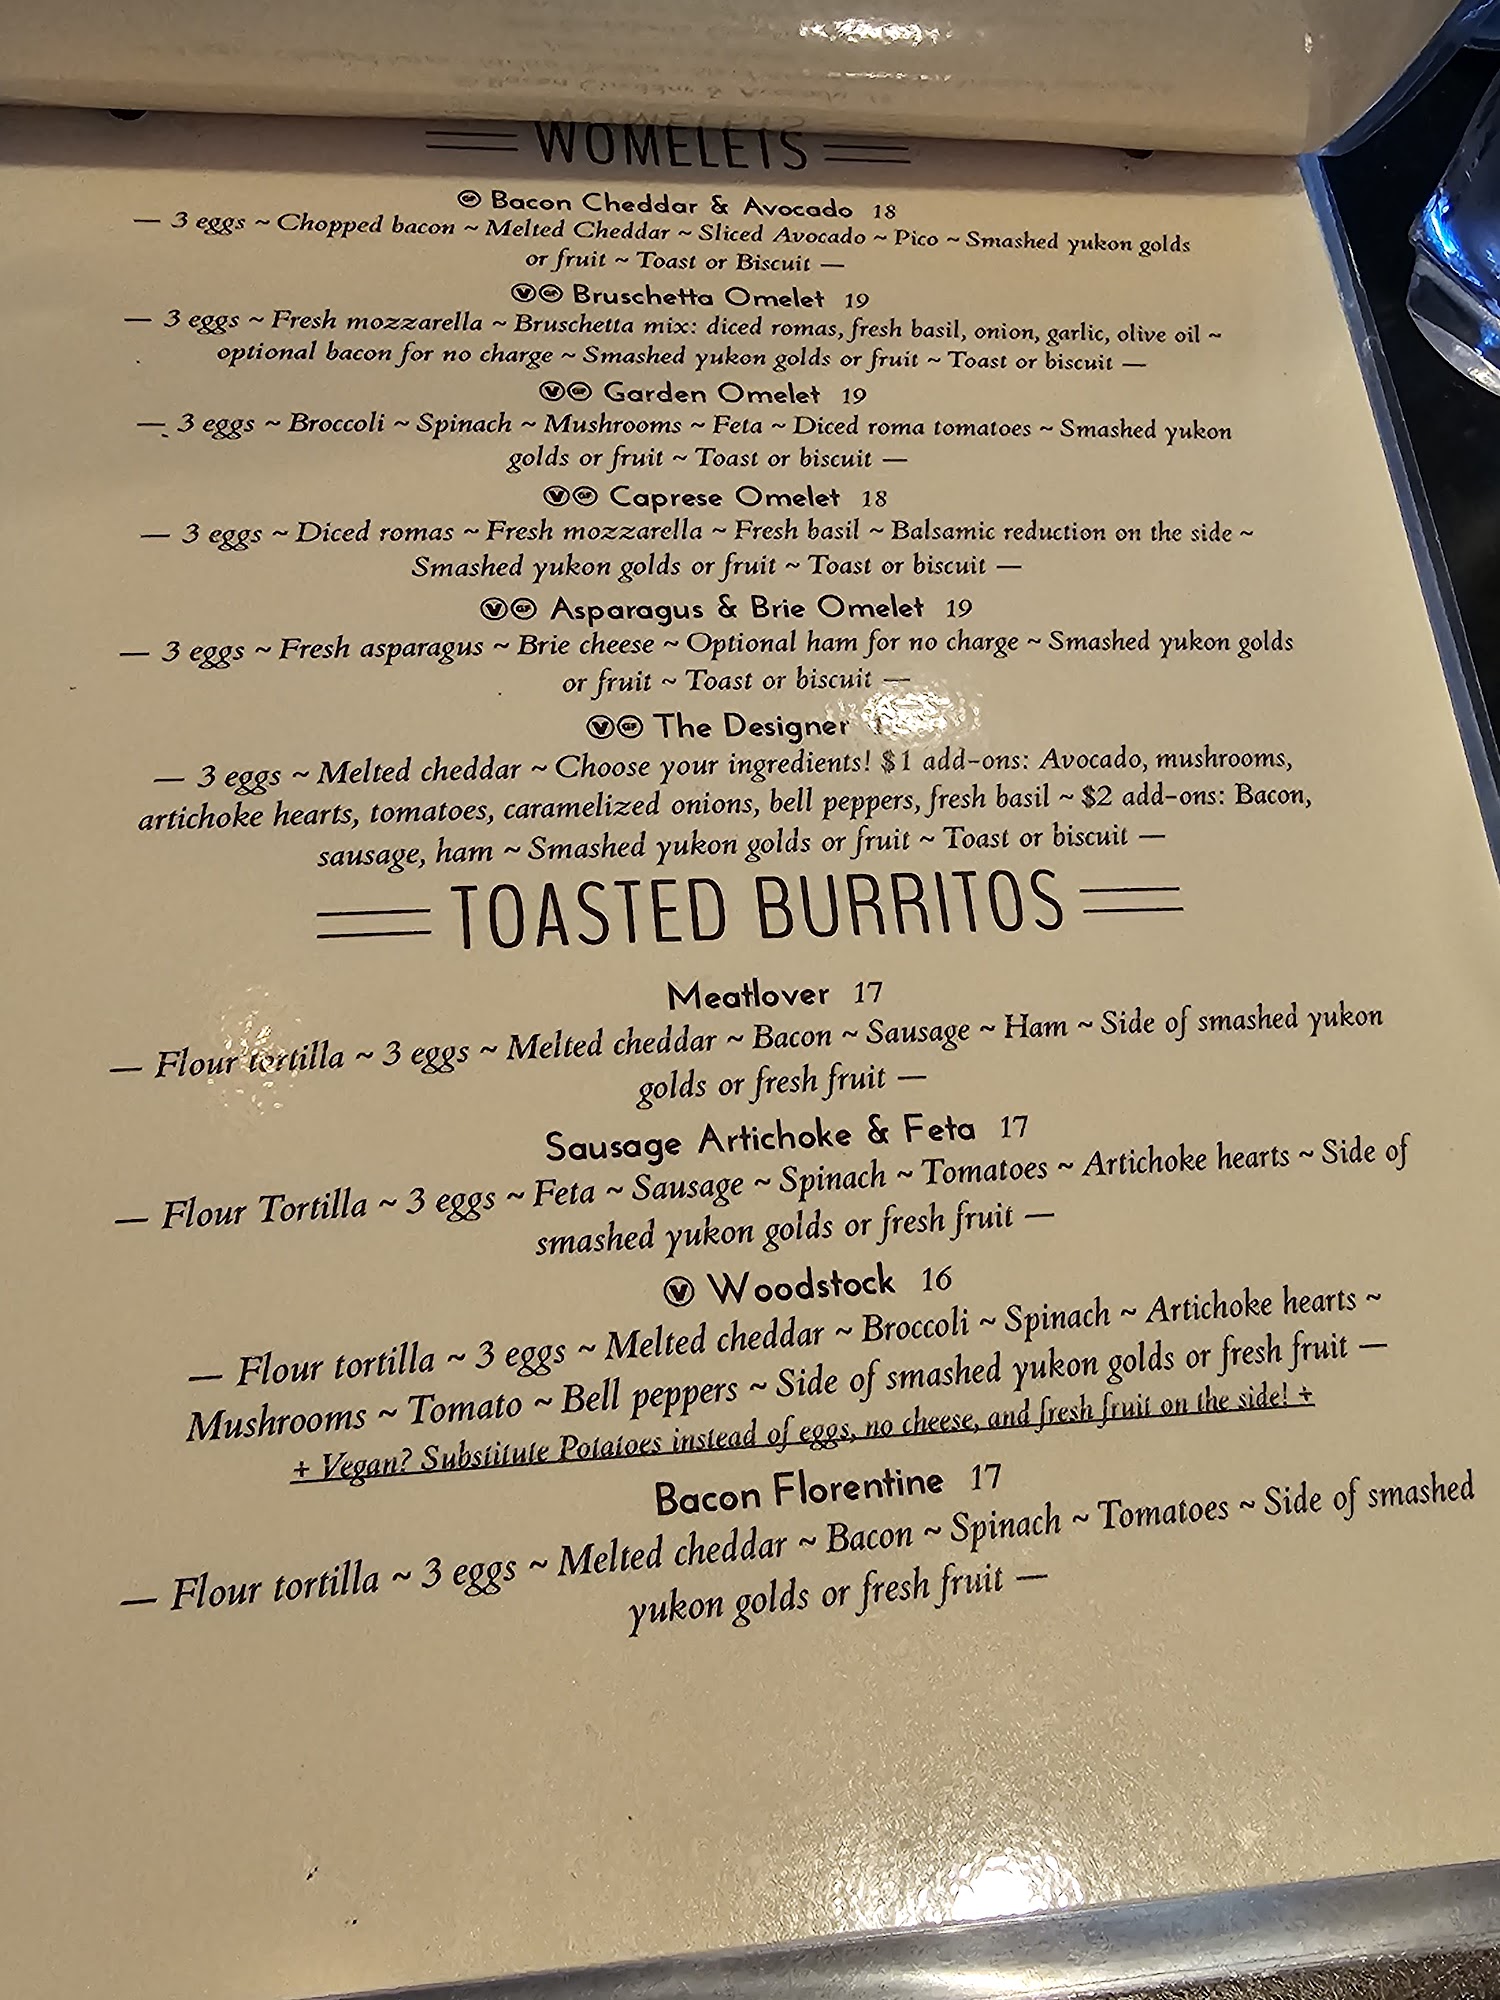 WOMELETS
GF Bacon Cheddar & Avocado 18
— 3 eggs ~ Chopped bacon ~ Melted Cheddar ~ Sliced Avocado ~ Pico ~ Smashed yukon golds
or fruit ~ Toast or Biscuit —
V GF Bruschetta Omelet 19
— 3 eggs ~ Fresh mozzarella ~ Bruschetta mix: diced romas, fresh basil, onion, garlic, olive oil ~
optional bacon for no charge ~ Smashed yukon golds or fruit ~ Toast or biscuit —
V GF Garden Omelet 19
— 3 eggs ~ Broccoli ~ Spinach ~ Mushrooms ~ Feta ~ Diced roma tomatoes ~ Smashed yukon
golds or fruit ~ Toast or biscuit —
V GF Caprese Omelet 18
— 3 eggs ~ Diced romas ~ Fresh mozzarella ~ Fresh basil ~ Balsamic reduction on the side ~
Smashed yukon golds or fruit ~ Toast or biscuit —
V GF Asparagus & Brie Omelet 19
— 3 eggs ~ Fresh asparagus ~ Brie cheese ~ Optional ham for no charge ~ Smashed yukon golds
or fruit ~ Toast or biscuit —
V GF The Designer
— 3 eggs ~ Melted cheddar ~ Choose your ingredients! $1 add-ons: Avocado, mushrooms,
artichoke hearts, tomatoes, caramelized onions, bell peppers, fresh basil ~ $2 add-ons: Bacon,
sausage, ham ~ Smashed yukon golds or fruit ~ Toast or biscuit —
TOASTED BURRITOS
Meatlover 17
— Flour tortilla ~ 3 eggs ~ Melted cheddar ~ Bacon ~ Sausage ~ Ham ~ Side of smashed yukon
golds or fresh fruit —
Sausage Artichoke & Feta 17
— Flour Tortilla ~ 3 eggs ~ Feta ~ Sausage ~ Spinach ~ Tomatoes ~ Artichoke hearts ~ Side of
smashed yukon golds or fresh fruit —
V Woodstock 16
— Flour tortilla ~ 3 eggs ~ Melted cheddar ~ Broccoli ~ Spinach ~ Artichoke hearts ~
Mushrooms ~ Tomato ~ Bell peppers ~ Side of smashed yukon golds or fresh fruit —
+ Vegan? Substitute Potatoes instead of eggs, no cheese, and fresh fruit on the side! +
Bacon Florentine 17
— Flour tortilla ~ 3 eggs ~ Melted cheddar ~ Bacon ~ Spinach ~ Tomatoes ~ Side of smashed
yukon golds or fresh fruit —